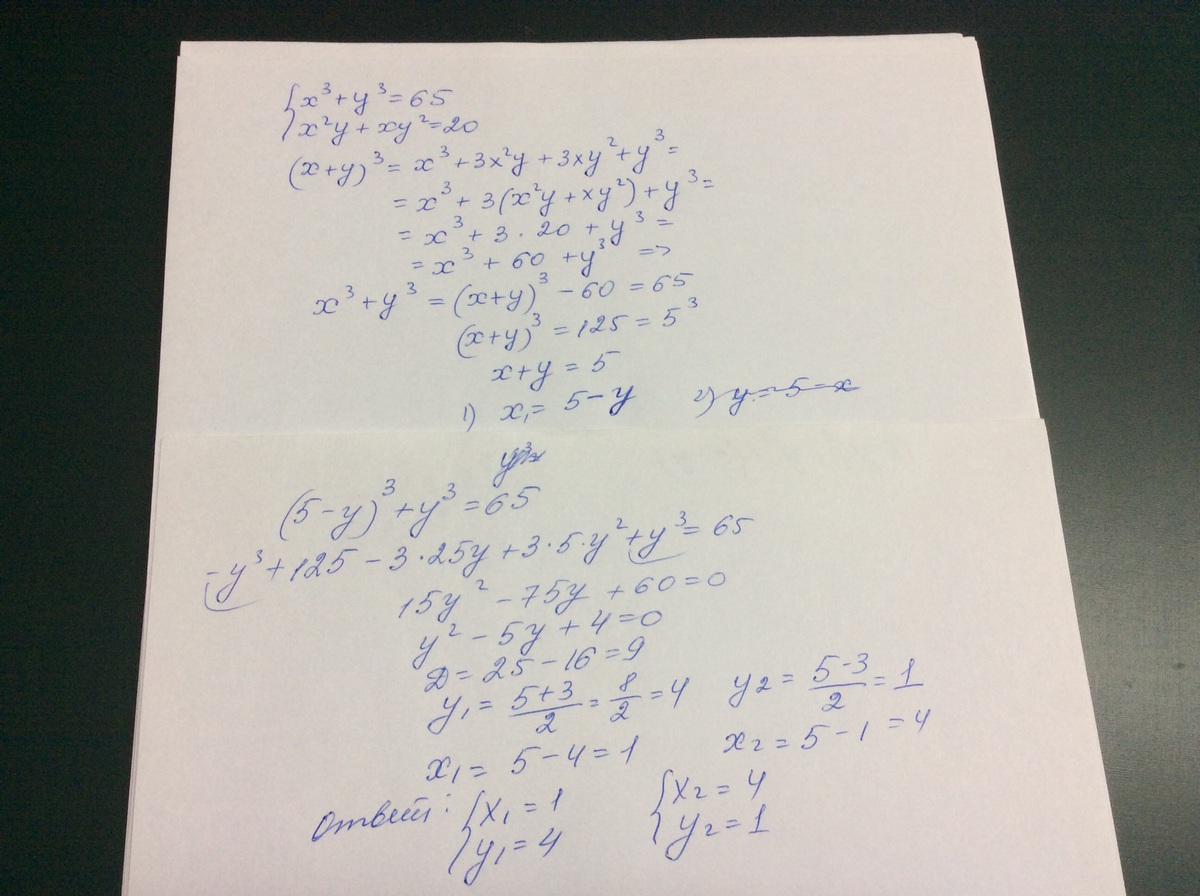 {x³+y³=65
x²y+xy²=20
(x+y)³ = x³+3x²y+3xy²+y³=
= x³+3(x²y+xy²)+y³=
= x³+3·20+y³=
= x³+60+y³ =>
x³+y³=(x+y)³-60=65
(x+y)³=125=5³
x+y=5
1) x₁= 5-y 2) y=5-x
(5-y)³+y³=65
-y³+125-3·25y+3·5·y²+y³=65
15y²-75y+60=0
y²-5y+4=0
D=25-16=9
y₁= (5+3)/2 = 8/2 =4 y₂= (5-3)/2 =1
x₁= 5-4=1 x₂=5-1=4
Ответ: {x₁=1 {x₂=4
y₁=4 y₂=1